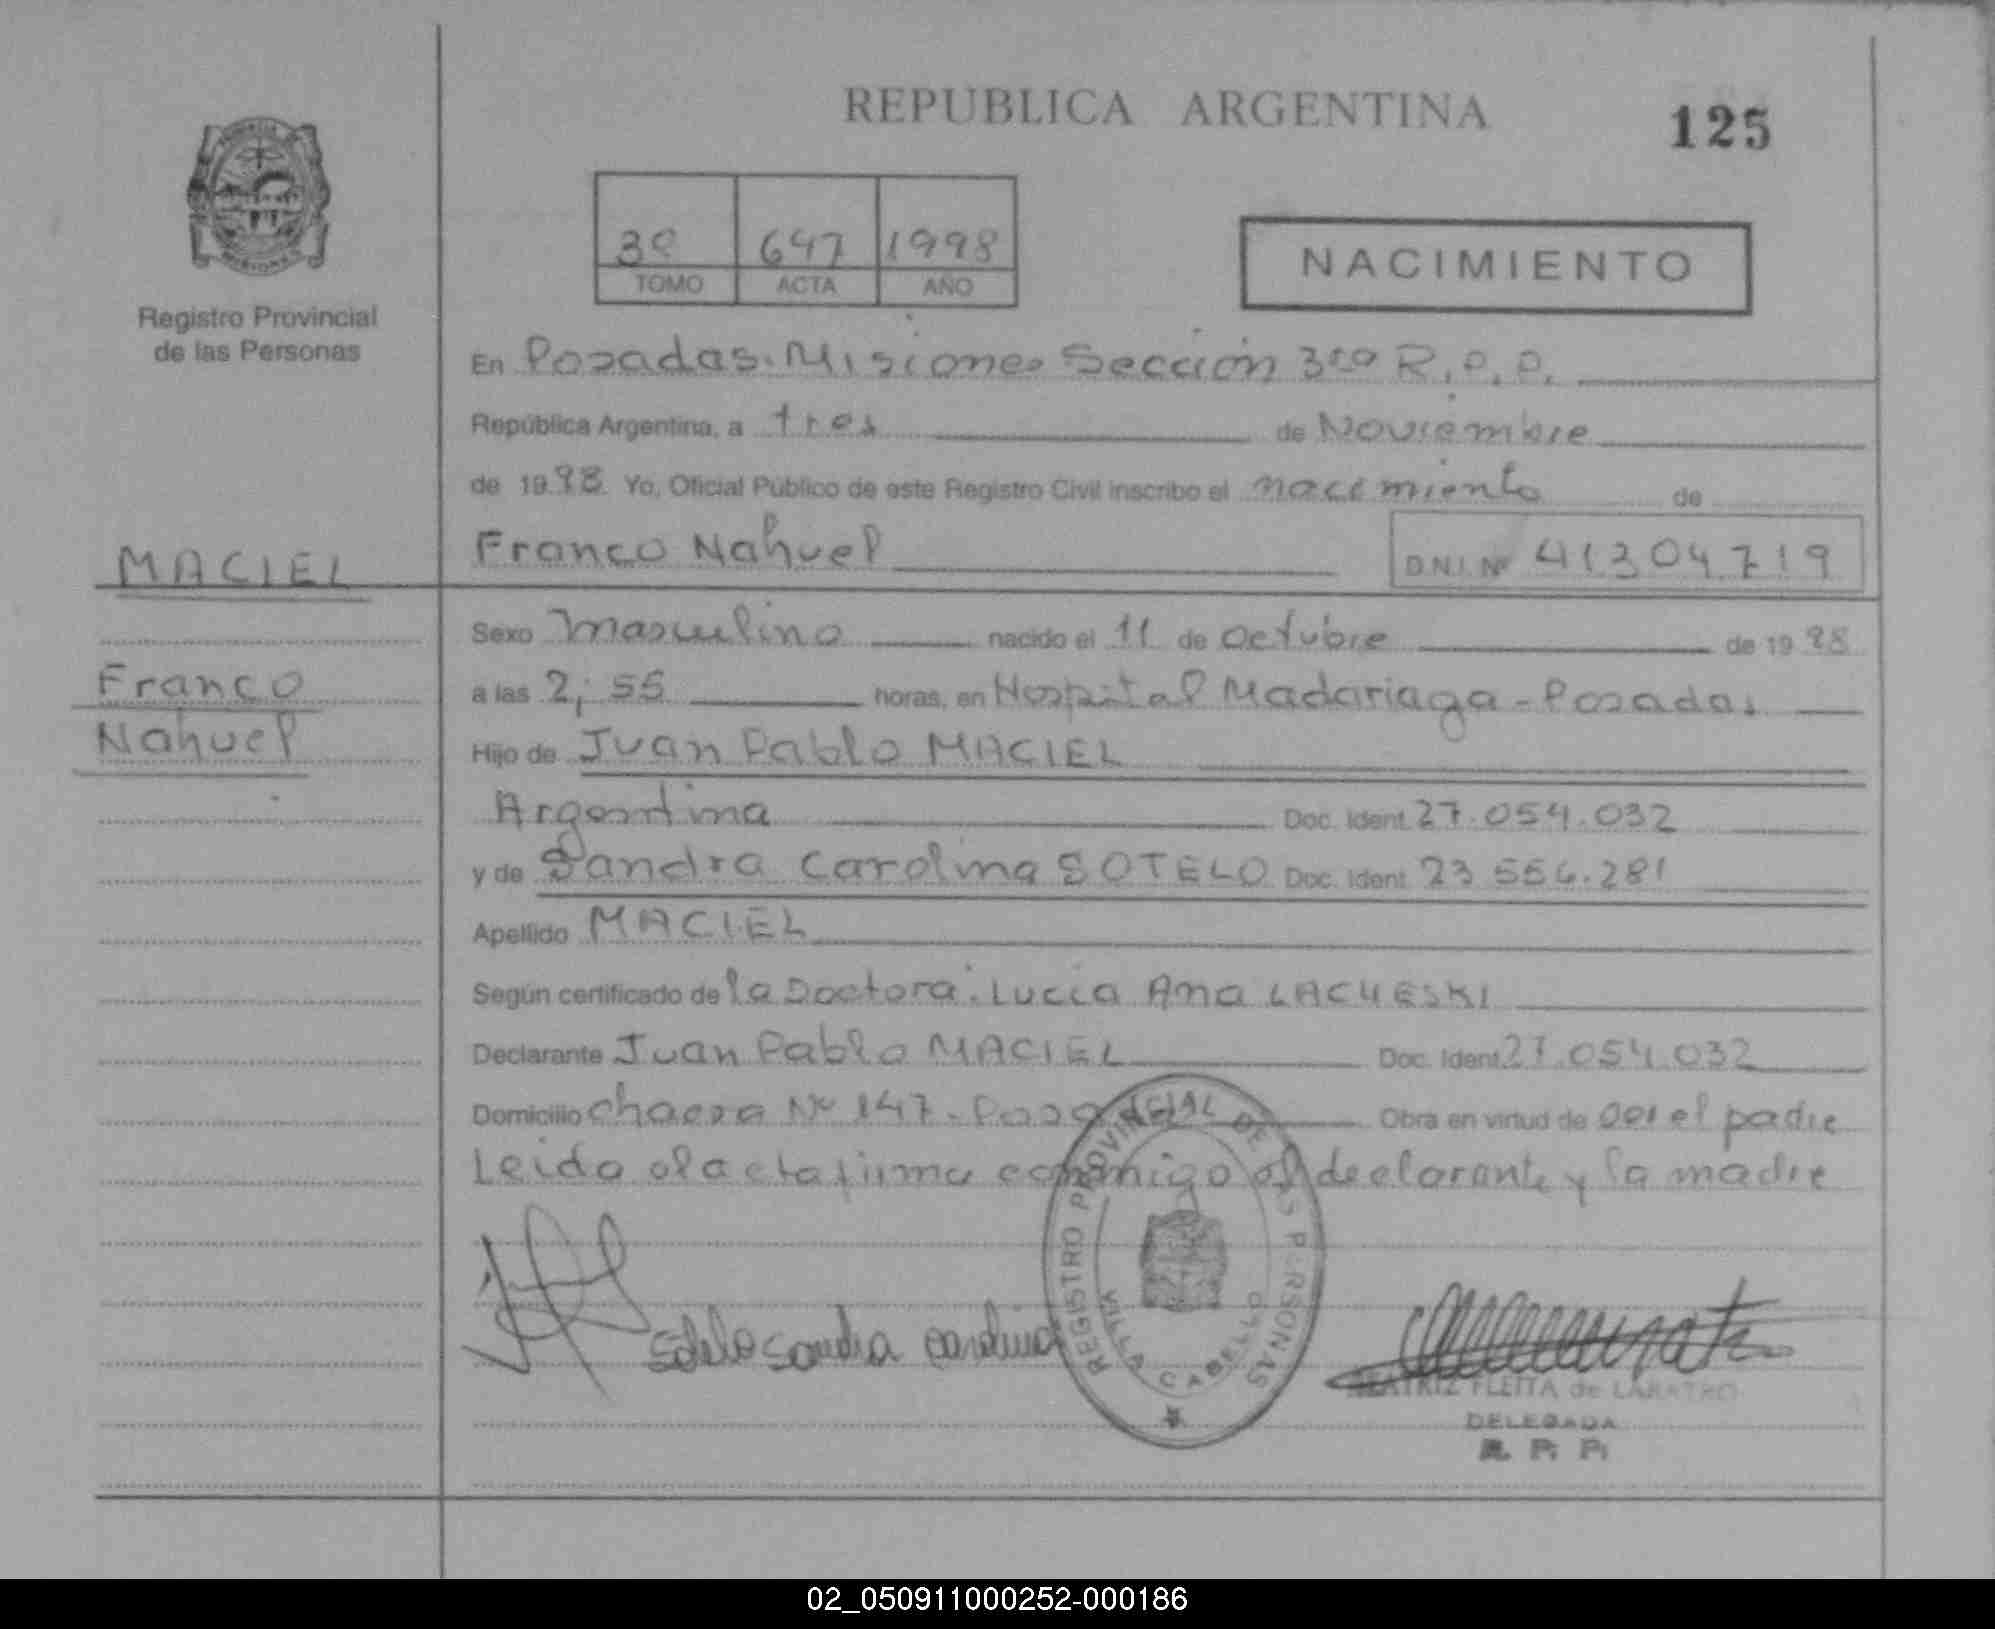 REPUBLICA ARGENTINA
125
3º 647 1998
TOMO ACTA AÑO
NACIMIENTO
Registro Provincial
de las Personas
En Posadas. Misiones Sección 3ra R.P.P.
República Argentina, a tres de Noviembre
de 1998 Yo, Oficial Público de este Registro Civil inscribo el nacimiento de
MACIEL
Franco Nahuel D.N.I. Nº 41304719
Sexo masculino nacido el 11 de octubre de 1998
Franco
a las 2,55 horas, en Hospital Madariaga - Posadas
Nahuel
Hijo de Juan Pablo MACIEL
Argentina Doc. Ident. 27.054.032
y de Sandra Carolina SOTELO Doc. Ident. 23 556.281
Apellido MACIEL
Según certificado de la Doctora. Lucía Ana LACHESKI
Declarante Juan Pablo MACIEL Doc. Ident. 27.054.032
Domicilio chacra Nº 147 - Obra en virtud de ser el padre
Leida el acta firma conmigo el declarante y la madre
REGISTRO PROVINCIAL DE LAS PERSONAS
VILLA CABELLO
Sotelo Sandra Carolina
BEATRIZ FLEITA de LARATRO
DELEGADA
R. P. P.
02_050911000252-000186